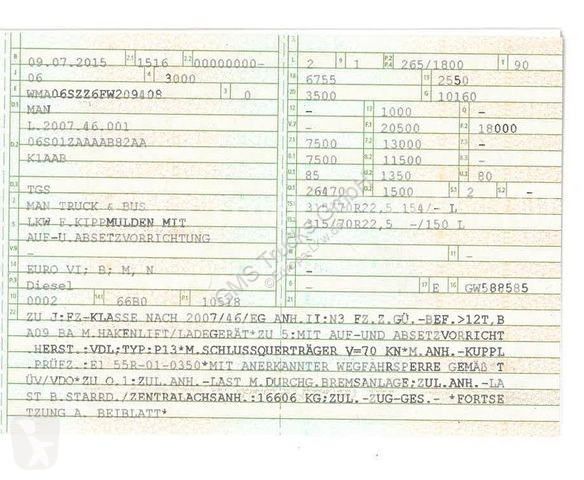 B 09.07.2015 2.1 1516 2.2 00000000-
J 06 4 3000
E WMA06SZZ6FW209408 3 0
D.1 MAN
L.2007.46.001
D.2 06S01ZAAAAB82AA
K1AAB
D.3 TGS
2 MAN TRUCK & BUS
5 LKW F.KIPPMULDEN MIT
AUF-U.ABSETZVORRICHTUNG
V.9 -
14 EURO VI; B; M, N
P.3 Diesel
10 0002 14.1 66B0 P.1 10518
L 2 9 1 P.2 P.4 265/1800 T 90
18 6755 19 2550
20 3500 G 10160
12 - 13 1000 Q -
- F.1 20500 F.2 18000
7.1 7500 13000 -
8.1 7500 11500 -
U.1 85 1350 U.3 80
O.1 26470 1500 S.1 2 S.2 -
15.1 315/70R22,5 154/- L
315/70R22,5 -/150 L
- -
- -
6 - 17 E 16 GW588585
22 ZU J:FZ-KLASSE NACH 2007/46/EG ANH.II:N3 FZ.Z.GÜ.-BEF.>12T,B
A09 BA M.HAKENLIFT/LADEGERÄT*ZU 5:MIT AUF-UND ABSETZVORRICHT
.HERST.:VDL;TYP:P13*M.SCHLUSSQUERTRÄGER V=70 KN*M.ANH.-KUPPL
.PRÜFZ.:E1 55R-01-0350*MIT ANERKANNTER WEGFAHRSPERRE GEMÄß T
ÜV/VDO*ZU O.1:ZUL.ANH.-LAST M.DURCHG.BREMSANLAGE;ZUL.ANH.-LA
ST B.STARRD./ZENTRALACHSANH.:16606 KG;ZUL.-ZUG-GES.- *FORTSE
TZUNG A. BEIBLATT*
GMS Trucks GmbH